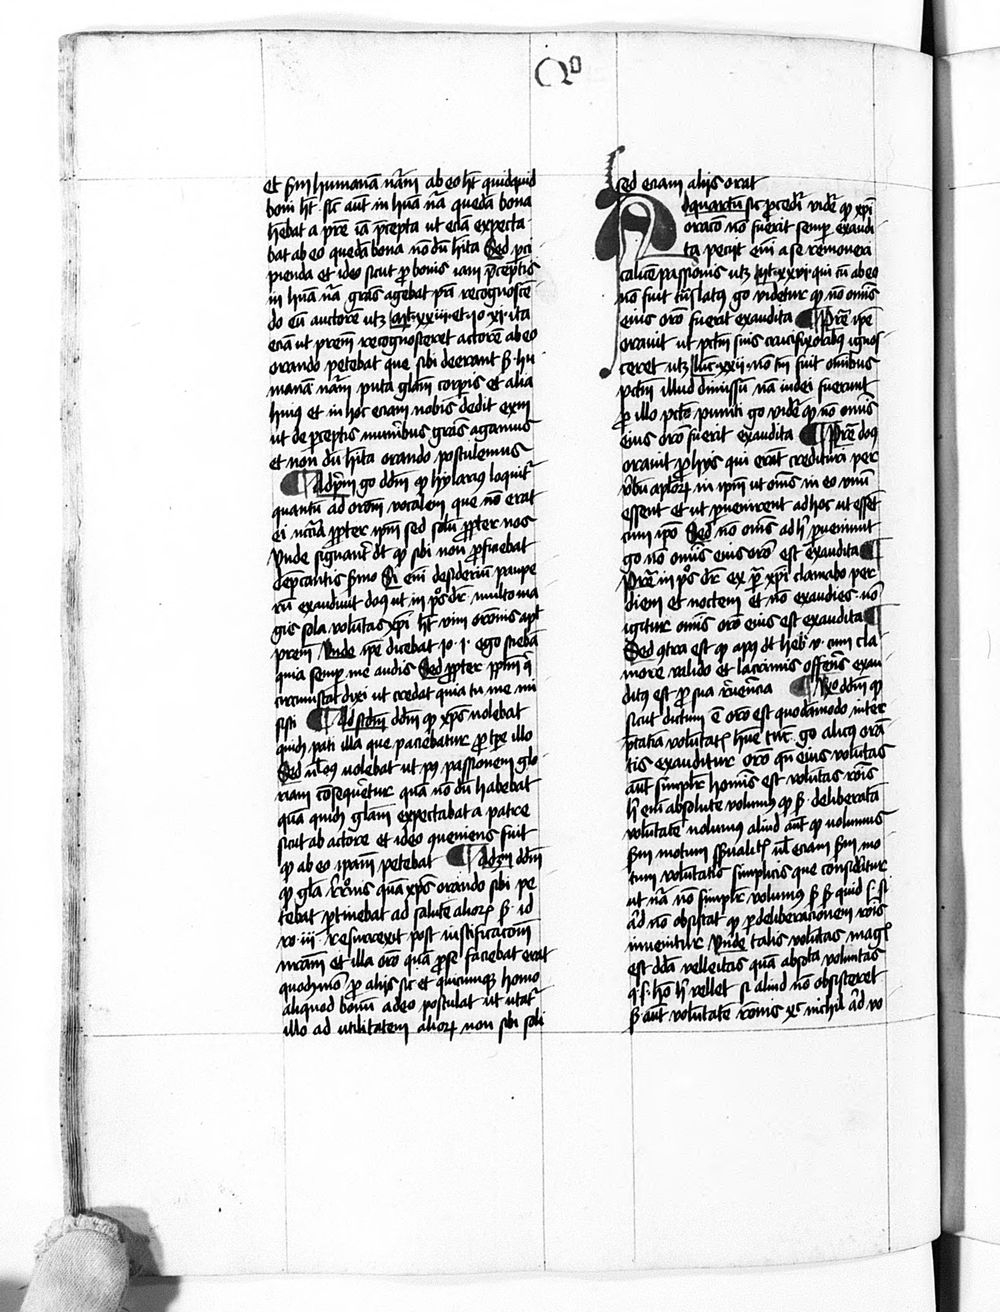 Qo
et scdm humanā nām ab eo hēt quidquid
boni hēt. sic aūt in hūa nā quedā bona
hēbat a pre iā p̄cepta ut eciā expecta
bat ab eo quedā bona nōdū hīta Sed pci
pienda et ideo sicut p bonis iam p̄ceptis
in hūa nā grās agebat pri recognosce
do eū auctorē utz Mt. xxvi et Jo xi ita
eciā ut prem recognosceret actorē ab eo
orando petebat que sibi deerant s. hu
manā nām puta glām corpis et alia
huiꝰ et in hoc eciam nobis dedit exm
ut de pceptis muneribus grās agamus
et non dū hīta orando postulemus
¶ Ad pm go dōm ꝙ hylarius loquitr
quantū ad orōm vocalem que nō erat
ei nccīa ppter ipm sed solū ppter nos
Vnde signant dt ꝙ sibi non pficiebat
depcantis smo Si eni desideriū paupe
rū exaudiuit dos ut in ps dr. multo ma
gis sola volūtas xpi hēt vim oronis apd
prem Vnde ipe dicebat Jo. i. ego sciebā
quia semp me audis Sed ppter pplm q
circumstat dixi ut credāt quia tu me mi
sisti ¶ Ad scdm dōm ꝙ xps nolebat
quidē pati illa que paciebatur p tpe illo
Sed nlomꝰ uolebat ut pꝰ passionem glo
riam cōsequetur quā nō dū habebat
quā quidē glām expectabat a patre
sicut ab actore et ideo queniens fuit
ꝙ ab eo ipam petebat ¶ Ad 3m dōm
ꝙ gla rrōnis quā xps orādo sibi pe
tebat ptinebat ad salutē aliorꝝ s. id
ro. iii. resurrexit post iustificacōm
nrām et illa orō quā p se faciebat erat
quodmō p alijs sic et quicumqꝫ homo
aliquod bonū a deo postulat ut utatr
illo ad utilitatem aliorꝝ non sibi soli
sed eciam alijs orat
Ad quartū sic pcedr vidr ꝙ xpi
oracō nō fuerit semp exaudi
ta peciit eni a se remoueri
calicē passionis utz Mt. xxvi qui tn ab eo
nō fuit trāslatꝰ go videtur ꝙ nō omīs
eius orō fuerit exaudita ¶ Pre ipe
orauit ut pctm suis crucifixoribꝫ ignos
ceret utz Luc. xxii. nō tn fuit omibus
pctm illud dimissū nā iudei fuerunt
p illo pcto puniti go vidr ꝙ nō omīs
eius orō fuerit exaudita ¶ Pre dos
orauit p hijs qui erāt credituri per
vbū aplorꝝ in ipm ut omīs in eo vnū
essent et ut peruenirent ad hoc ut essēt
cum ipo Sed nō omīs ad h pueniūt
go nō omīs eius orō est exaudita ¶
Pre in ps dr ex p xpi clamabo per
diem et noctem et nō exaudies nō
igitur omīs orō eius est exaudita ¶
Sed qtra est ꝙ apꝰ dt heb. v. cum cla
more valido et lacrimis offerēs exau
ditꝰ est p sua reuerencia ¶ Rō dōm ꝙ
sicut dictum ē orō est quodāmodo inter
ptatia volūtatꝭ hue tuc. go alicꝰ orā
tis exauditur orō qn eius volūtas
aut simplr hominis est volūtas rōis
h eni absolute volumꝰ ꝙ s. deliberatā
volūtatē nolumꝰ aliud aut ꝙ uolumus
scdm motum sensualitꝭ ul eciam scdm mo
tum volūtatis simplicis que considetur
ut nā nō simplr volumus s. s. quid s. si
aliud nō obsistat ꝙ p deliberacionem rōis
inuenitur Vnde talis volūtas magꝭ
est dda velleitas quā absoluta volūtas
q. s. hō h vellet si aliud nō obsisteret
s. aut volūtatē rōnis xs nichil aliud vo